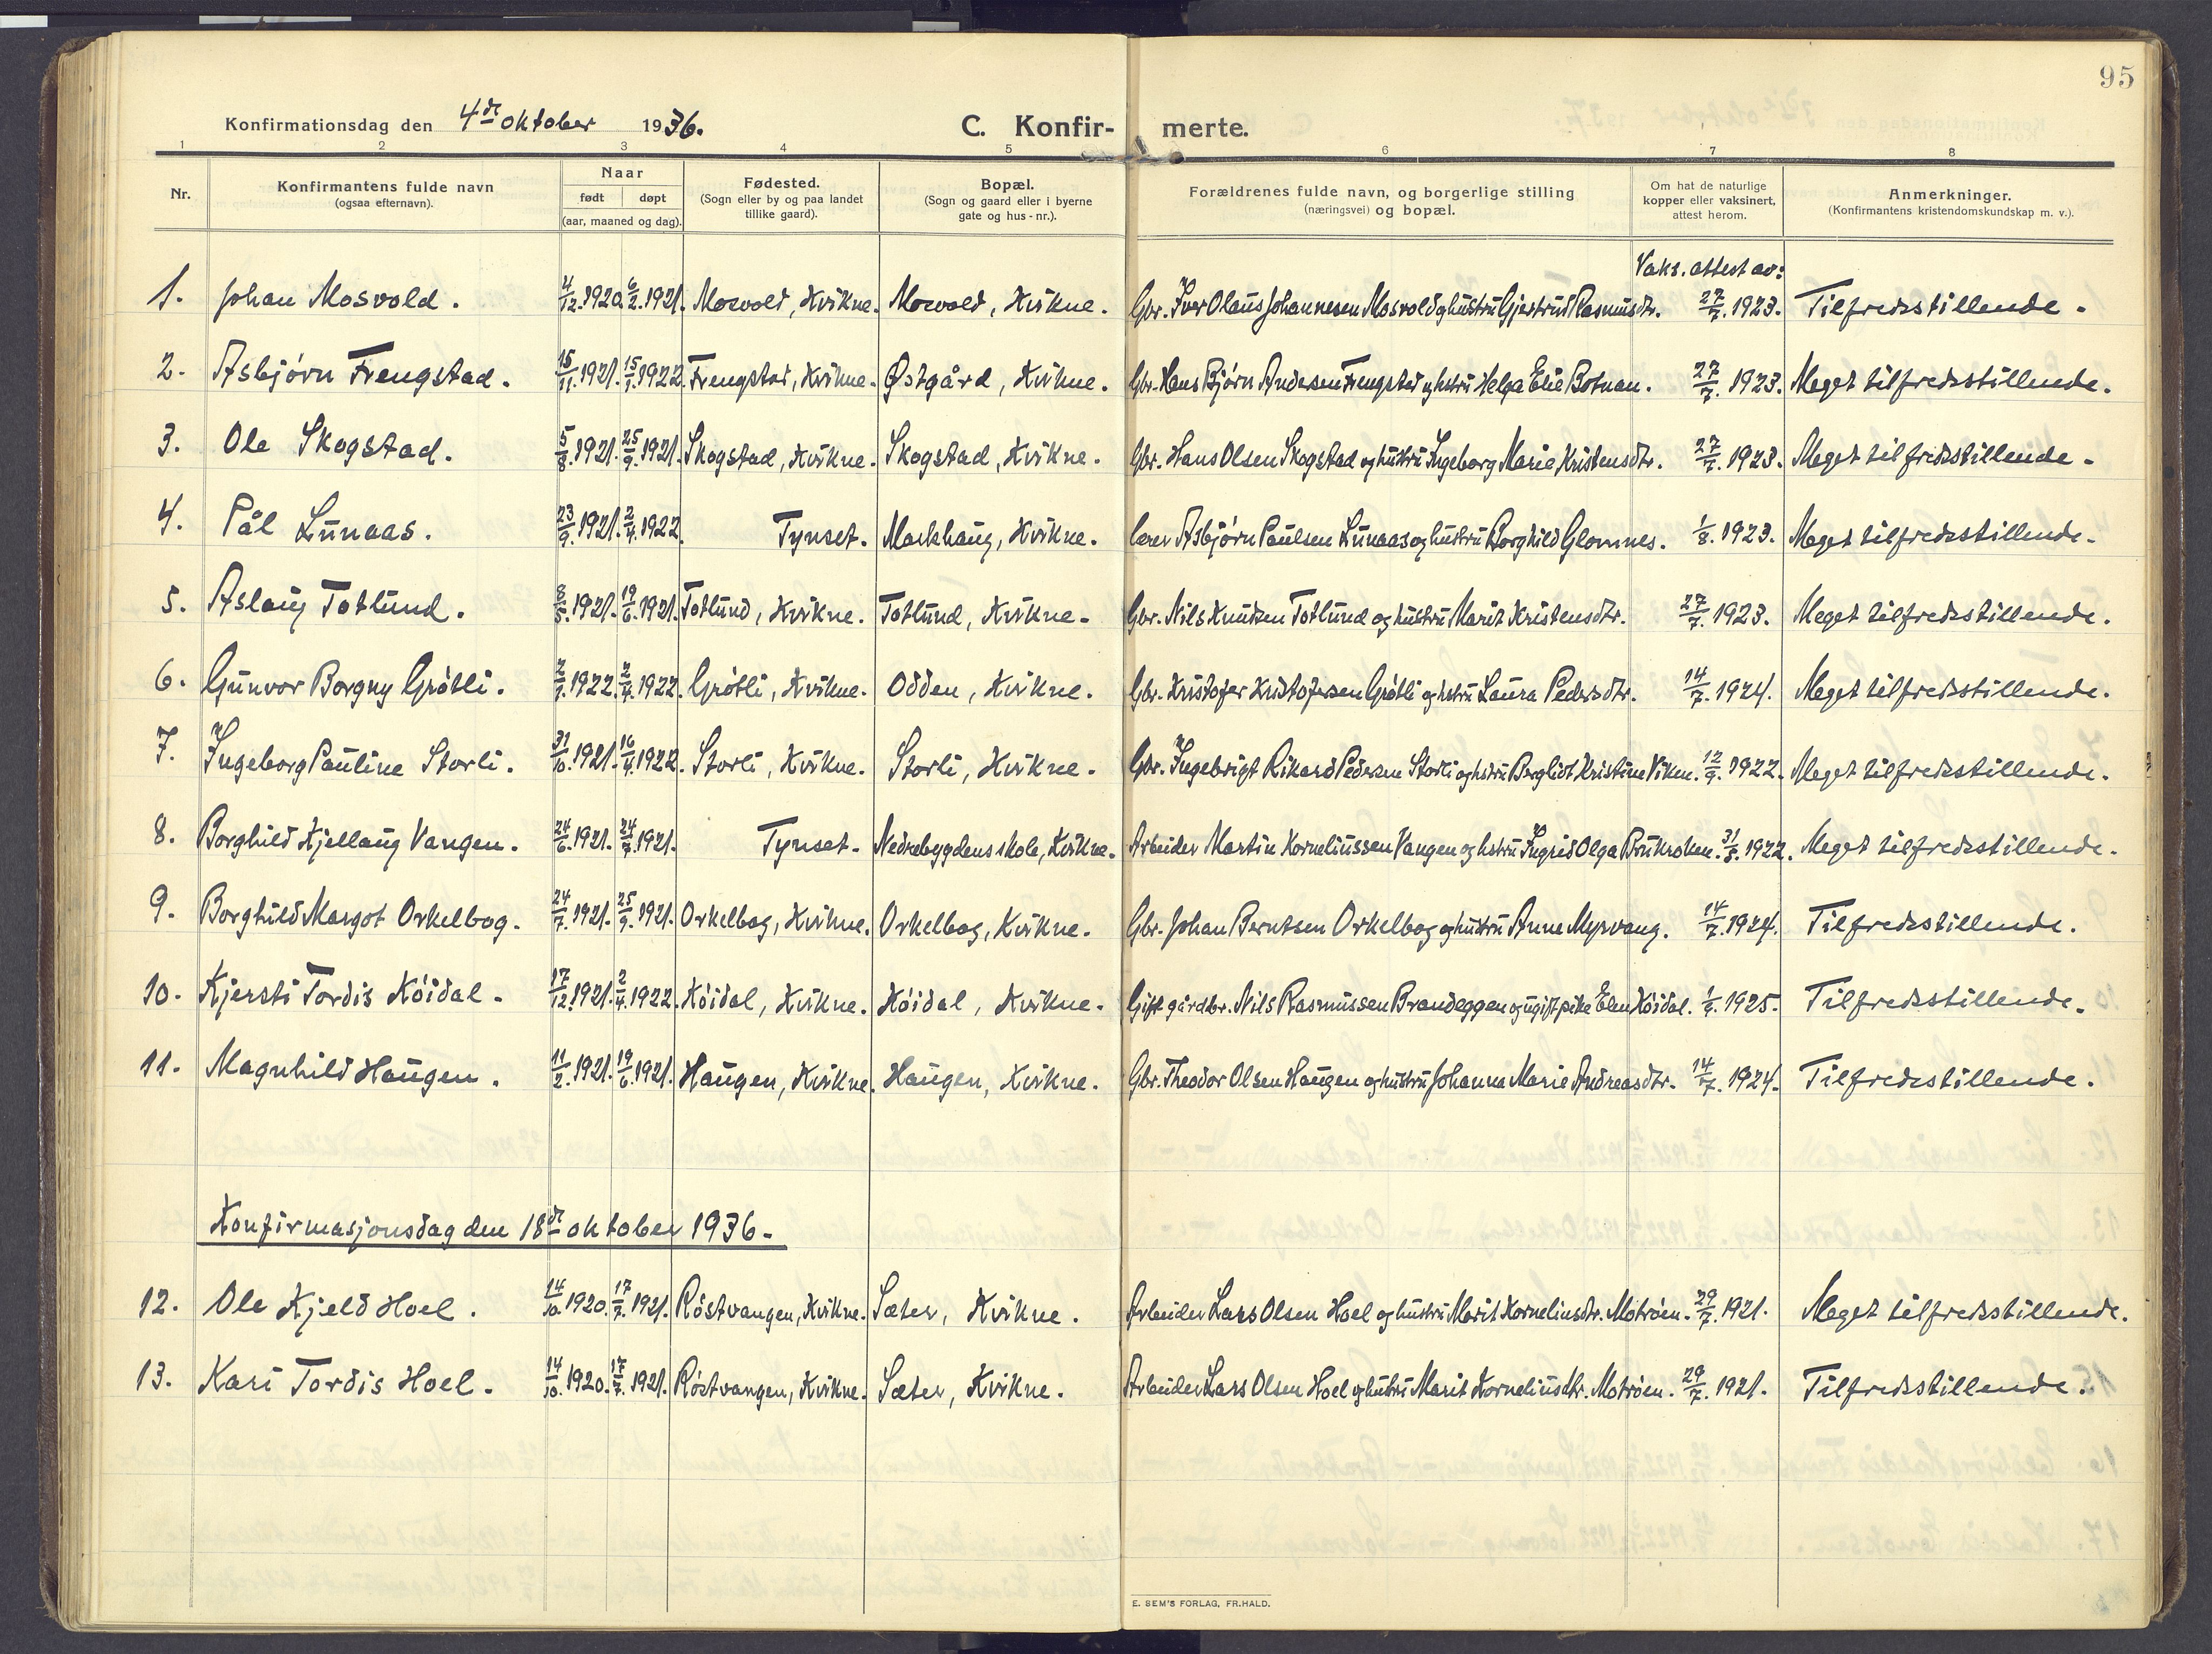 95
Konfirmationsdag den 4de oktober 1936. C. Konfir- merte.
1 2 3 4 5 6 7 8
Nr. Konfirmantens fulde navn (ogsaa efternavn). Naar født døpt (aar, maaned og dag). Fødested. (Sogn eller by og paa landet tillike gaard). Bopæl. (Sogn og gaard eller i byerne gate og hus-nr.). Forældrenes fulde navn, og borgerlige stilling (næringsvei) og bopæl. Om hat de naturlige kopper eller vaksinert, attest herom. Anmerkninger. (Konfirmantens kristendomskundskap m. v.).
Vaks. attest av:
1. Johan Mosvold. 4/12. 1920. 6/2. 1921. Mosvold, Kvikne. Mosvold, Kvikne. Gbr. Iver Olaus Johannesen Mosvold og hustru Gjertrud Rasmusdtr. 27/7. 1923. Tilfredsstillende.
2. Asbjørn Frengstad. 15/11. 1921. 15/1. 1922. Frengstad, Kvikne. Østgård, Kvikne. Gbr. Hans Bjørn Andersen Frengstad og hstru Helga Elie Botnan. 27/7. 1923. Meget tilfredsstillende.
3. Ole Skogstad. 5/8. 1921. 25/9. 1921. Skogstad, Kvikne. Skogstad, Kvikne. Gbr. Hans Olsen Skogstad og hustru Ingeborg Marie Kristensdtr. 27/7. 1923. Meget tilfredsstillende.
4. Pål Lunaas. 23/9. 1921. 2/4. 1922. Tynset. Markhaug, Kvikne. Lærer Asbjørn Paulsen Lunaas og hustru Borghild Glomnes. 1/8. 1923. Meget tilfredsstillende.
5. Aslaug Totlund. 8/5. 1921. 19/6. 1921. Totlund, Kvikne. Totlund, Kvikne. Gbr. Nils Knutsen Totlund og hustru Marit Kristensdtr. 27/7. 1923. Meget tilfredsstillende.
6. Gunvor Borgny Grøtli. 2/1. 1922. 2/4. 1922. Grøtli, Kvikne. Odden, Kvikne. Gbr. Kristofer Kristofersen Grøtli og hstru Laura Pedersdtr. 14/7. 1924. Meget tilfredsstillende.
7. Ingeborg Pauline Storli. 31/10. 1921. 16/4. 1922. Storli, Kvikne. Storli, Kvikne. Gbr. Ingebrigt Rikard Pedersen Storli og hstru Bergliot Kristine Viken. 12/9. 1922. Meget tilfredsstillende.
8. Borghild Kjellaug Vangen. 24/6. 1921. 24/7. 1921. Tynset. Nedrebygdens skole, Kvikne. Arbeider Martin Korneliussen Vangen og hstru Ingrid Olga Brukroken. 31/8. 1922. Meget tilfredsstillende.
9. Borghild Margot Orkelbog. 24/7. 1921. 25/9. 1921. Orkelbog, Kvikne. Orkelbog, Kvikne. Gbr. Johan Berntsen Orkelbog og hustru Anne Myrvang. 14/7. 1924. Tilfredsstillende.
10. Kjersti Tordis Køidal. 17/12. 1921. 2/4. 1922. Køidal, Kvikne. Køidal, Kvikne. Gift gårdbr. Nils Rasmussen Brandeggen og ugift pike Elen Køidal. 1/9. 1925. Tilfredsstillende.
11. Magnhild Haugen. 11/2. 1921. 19/6. 1921. Haugen, Kvikne. Haugen, Kvikne. Gbr. Theodor Olsen Haugen og hustru Johanna Marie Andreasdtr. 14/7. 1924. Tilfredsstillende.
Konfirmasjonsdag den 18de oktober 1936.
12. Ole Kjeld Hoel. 14/10. 1920. 17/7. 1921. Røstvangen, Kvikne. Sæter, Kvikne. Arbeider Lars Olsen Hoel og hustru Marit Korneliusdtr. Motrøen. 29/7. 1921. Meget tilfredsstillende.
13. Kari Tordis Hoel. 14/10. 1920. 17/7. 1921. Røstvangen, Kvikne. Sæter, Kvikne. Arbeider Lars Olsen Hoel og hustru Marit Korneliusdtr. Motrøen. 29/7. 1921. Tilfredsstillende.
E. SEM'S FORLAG, FR.HALD.